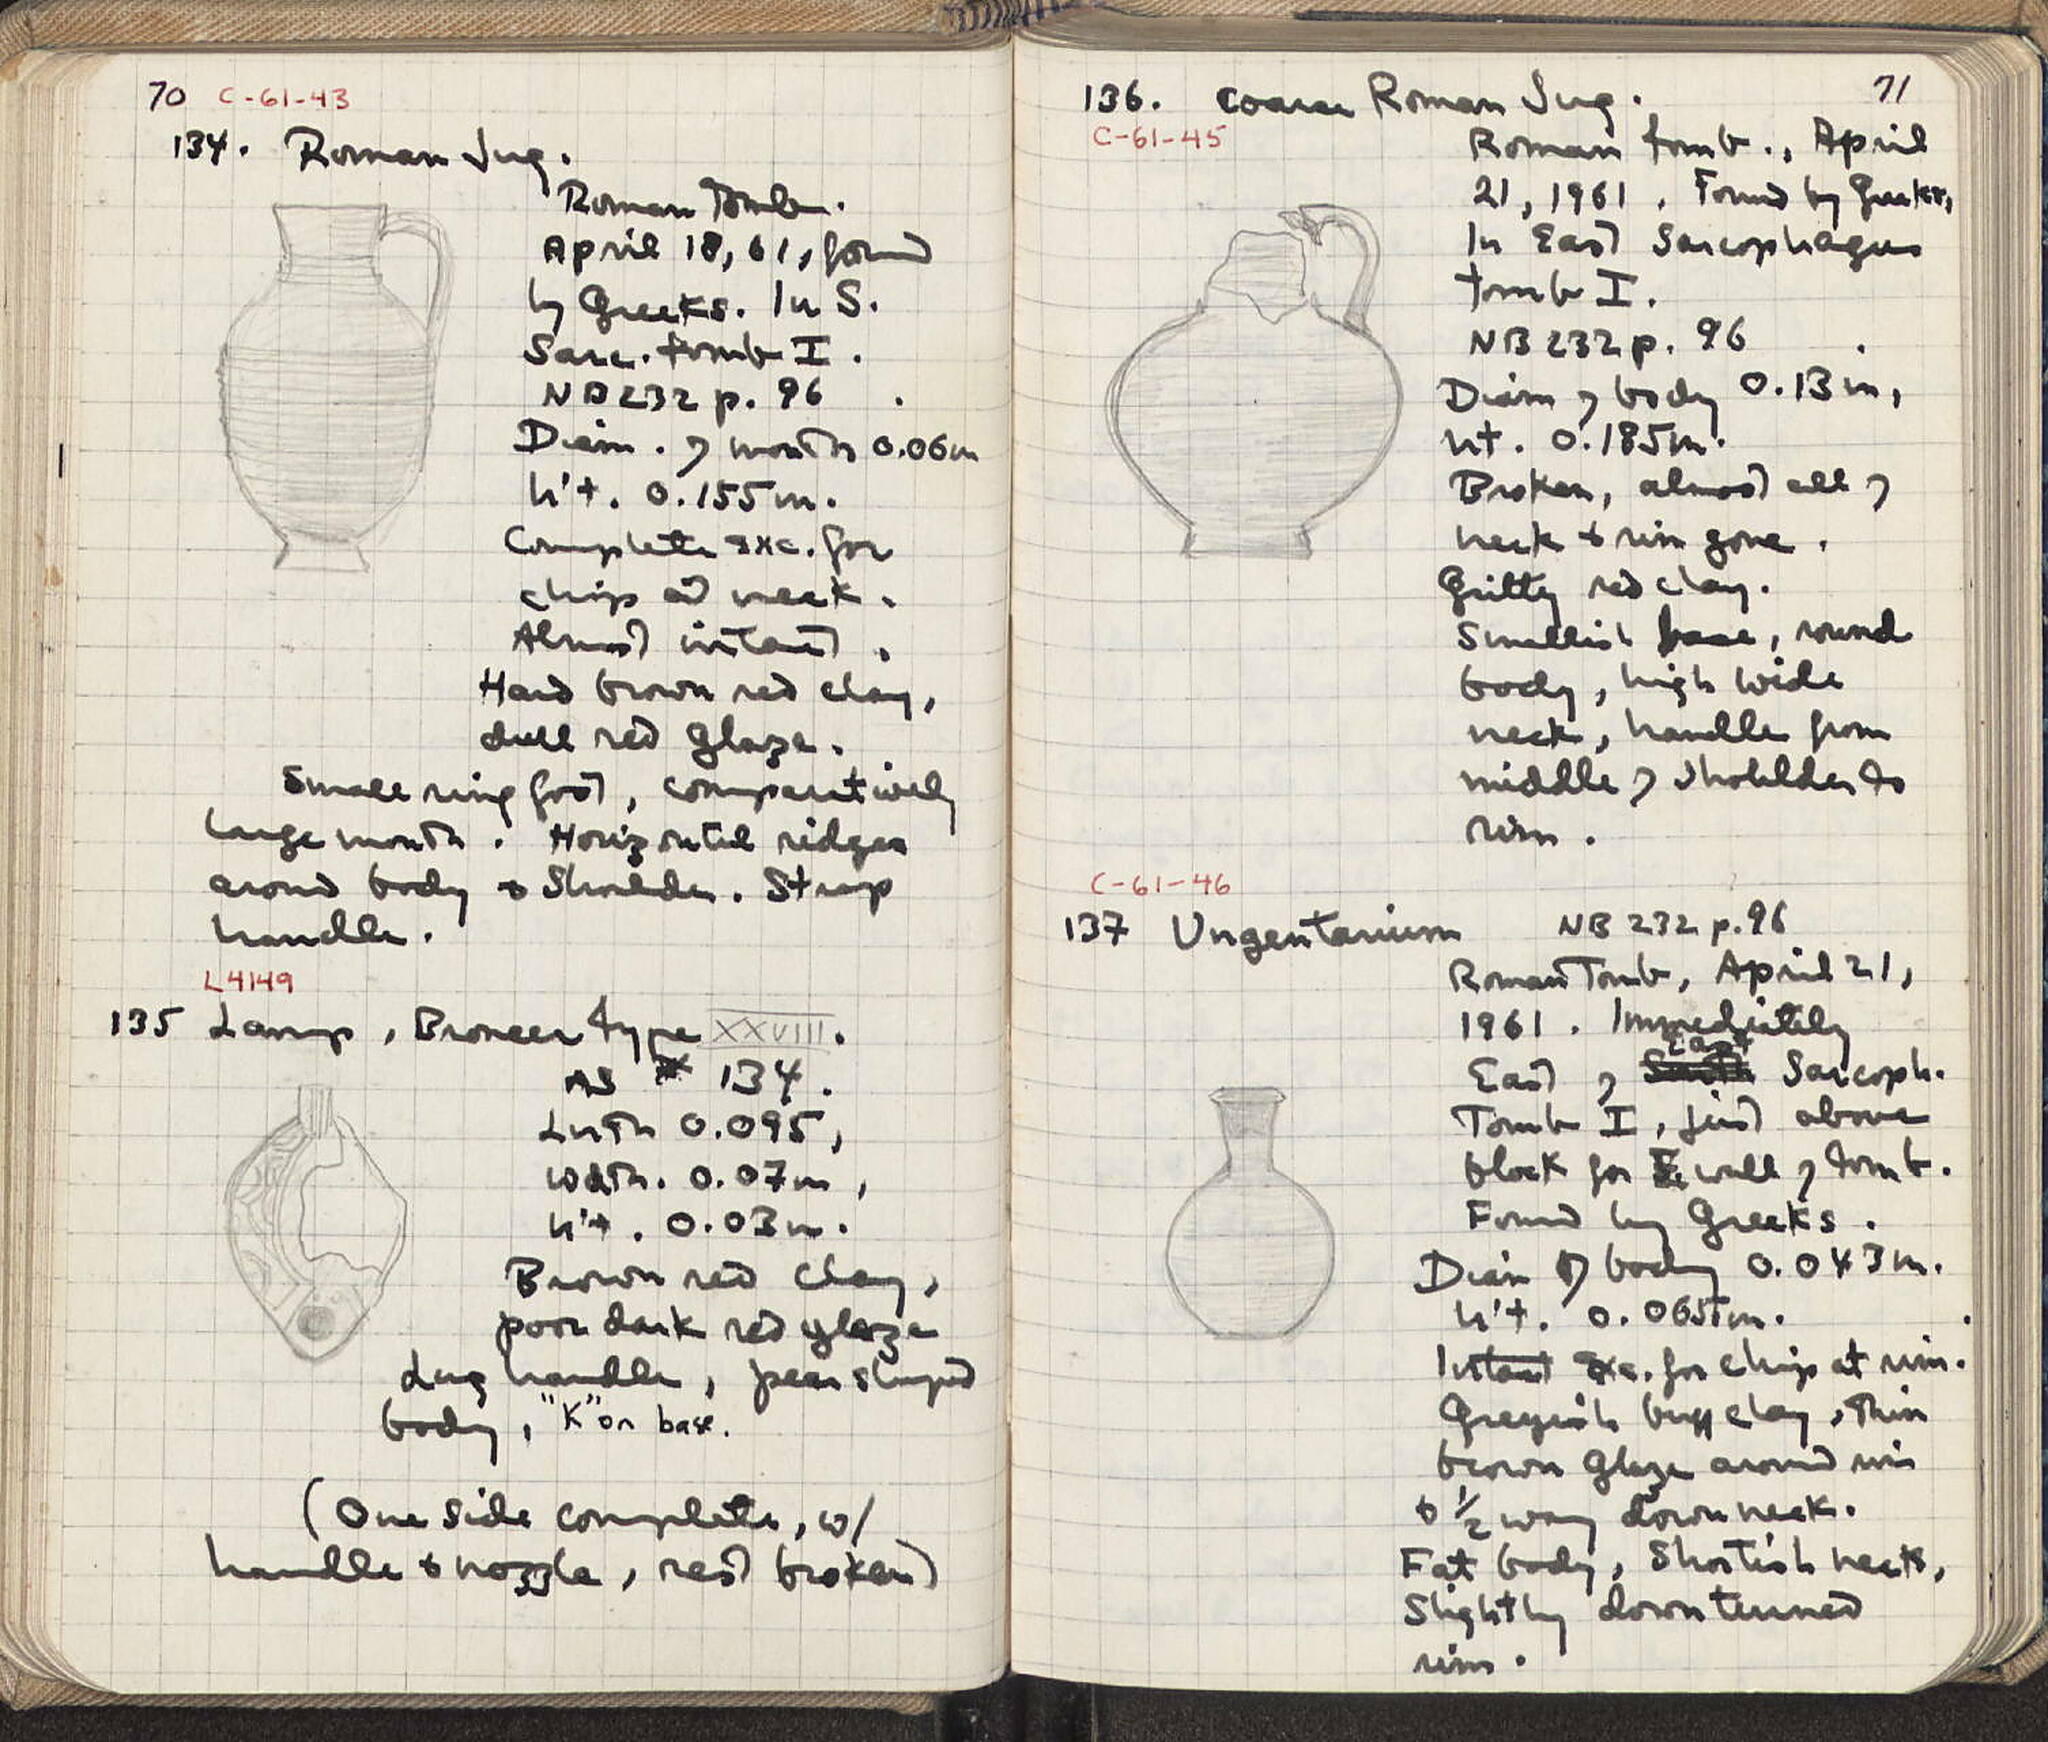 70 C-61-43
134. Roman Jug.
Roman Tomb.
April 18, 61, found
by Greeks. In S.
Sarc. tomb I.
NB 232 p. 96
Diam. of mouth 0.06m
h't. 0.155m.
Complete exc. for
chip at neck.
Almost intact.
Hard brown red clay,
dull red glaze.
Small ring foot, comparatively
large mouth. Horizontal ridges
around body & Shoulder. Strap
handle.
L4149
135 Lamp, Broneer type XXVIII.
AS # 134.
Lngth 0.095,
Wdth. 0.07m,
h't. 0.03m.
Brown red clay,
poor dark red glaze
Lug handle, pear shaped
body, "K" on base.
(One side complete, w/
handle & nozzle, rest broken)
71
136. Coarse Roman Jug.
C-61-45
Roman tomb., April
21, 1961. Found by Greeks,
In East Sarcophagus
tomb I.
NB 232 p. 96
Diam of body 0.13m,
ht. 0.185m.
Broken, almost all of
neck & rim gone.
Gritty red clay.
Smallish base, round
body, high wide
neck, handle from
middle of shoulder to
rim.
C-61-46
137 Ungentarium NB 232 p. 96
Roman Tomb, April 21,
1961. Immediately
East of South East Sarcoph.
Tomb I, just above
block for E wall of tomb.
Found by Greeks.
Diam of body 0.043m.
h't. 0.065m.
Intact exc. for chip at rim.
Greyish buff clay, thin
brown glaze around rim
& 1/2 way down neck.
Fat body, Shortish neck,
Slightly down turned
rim.